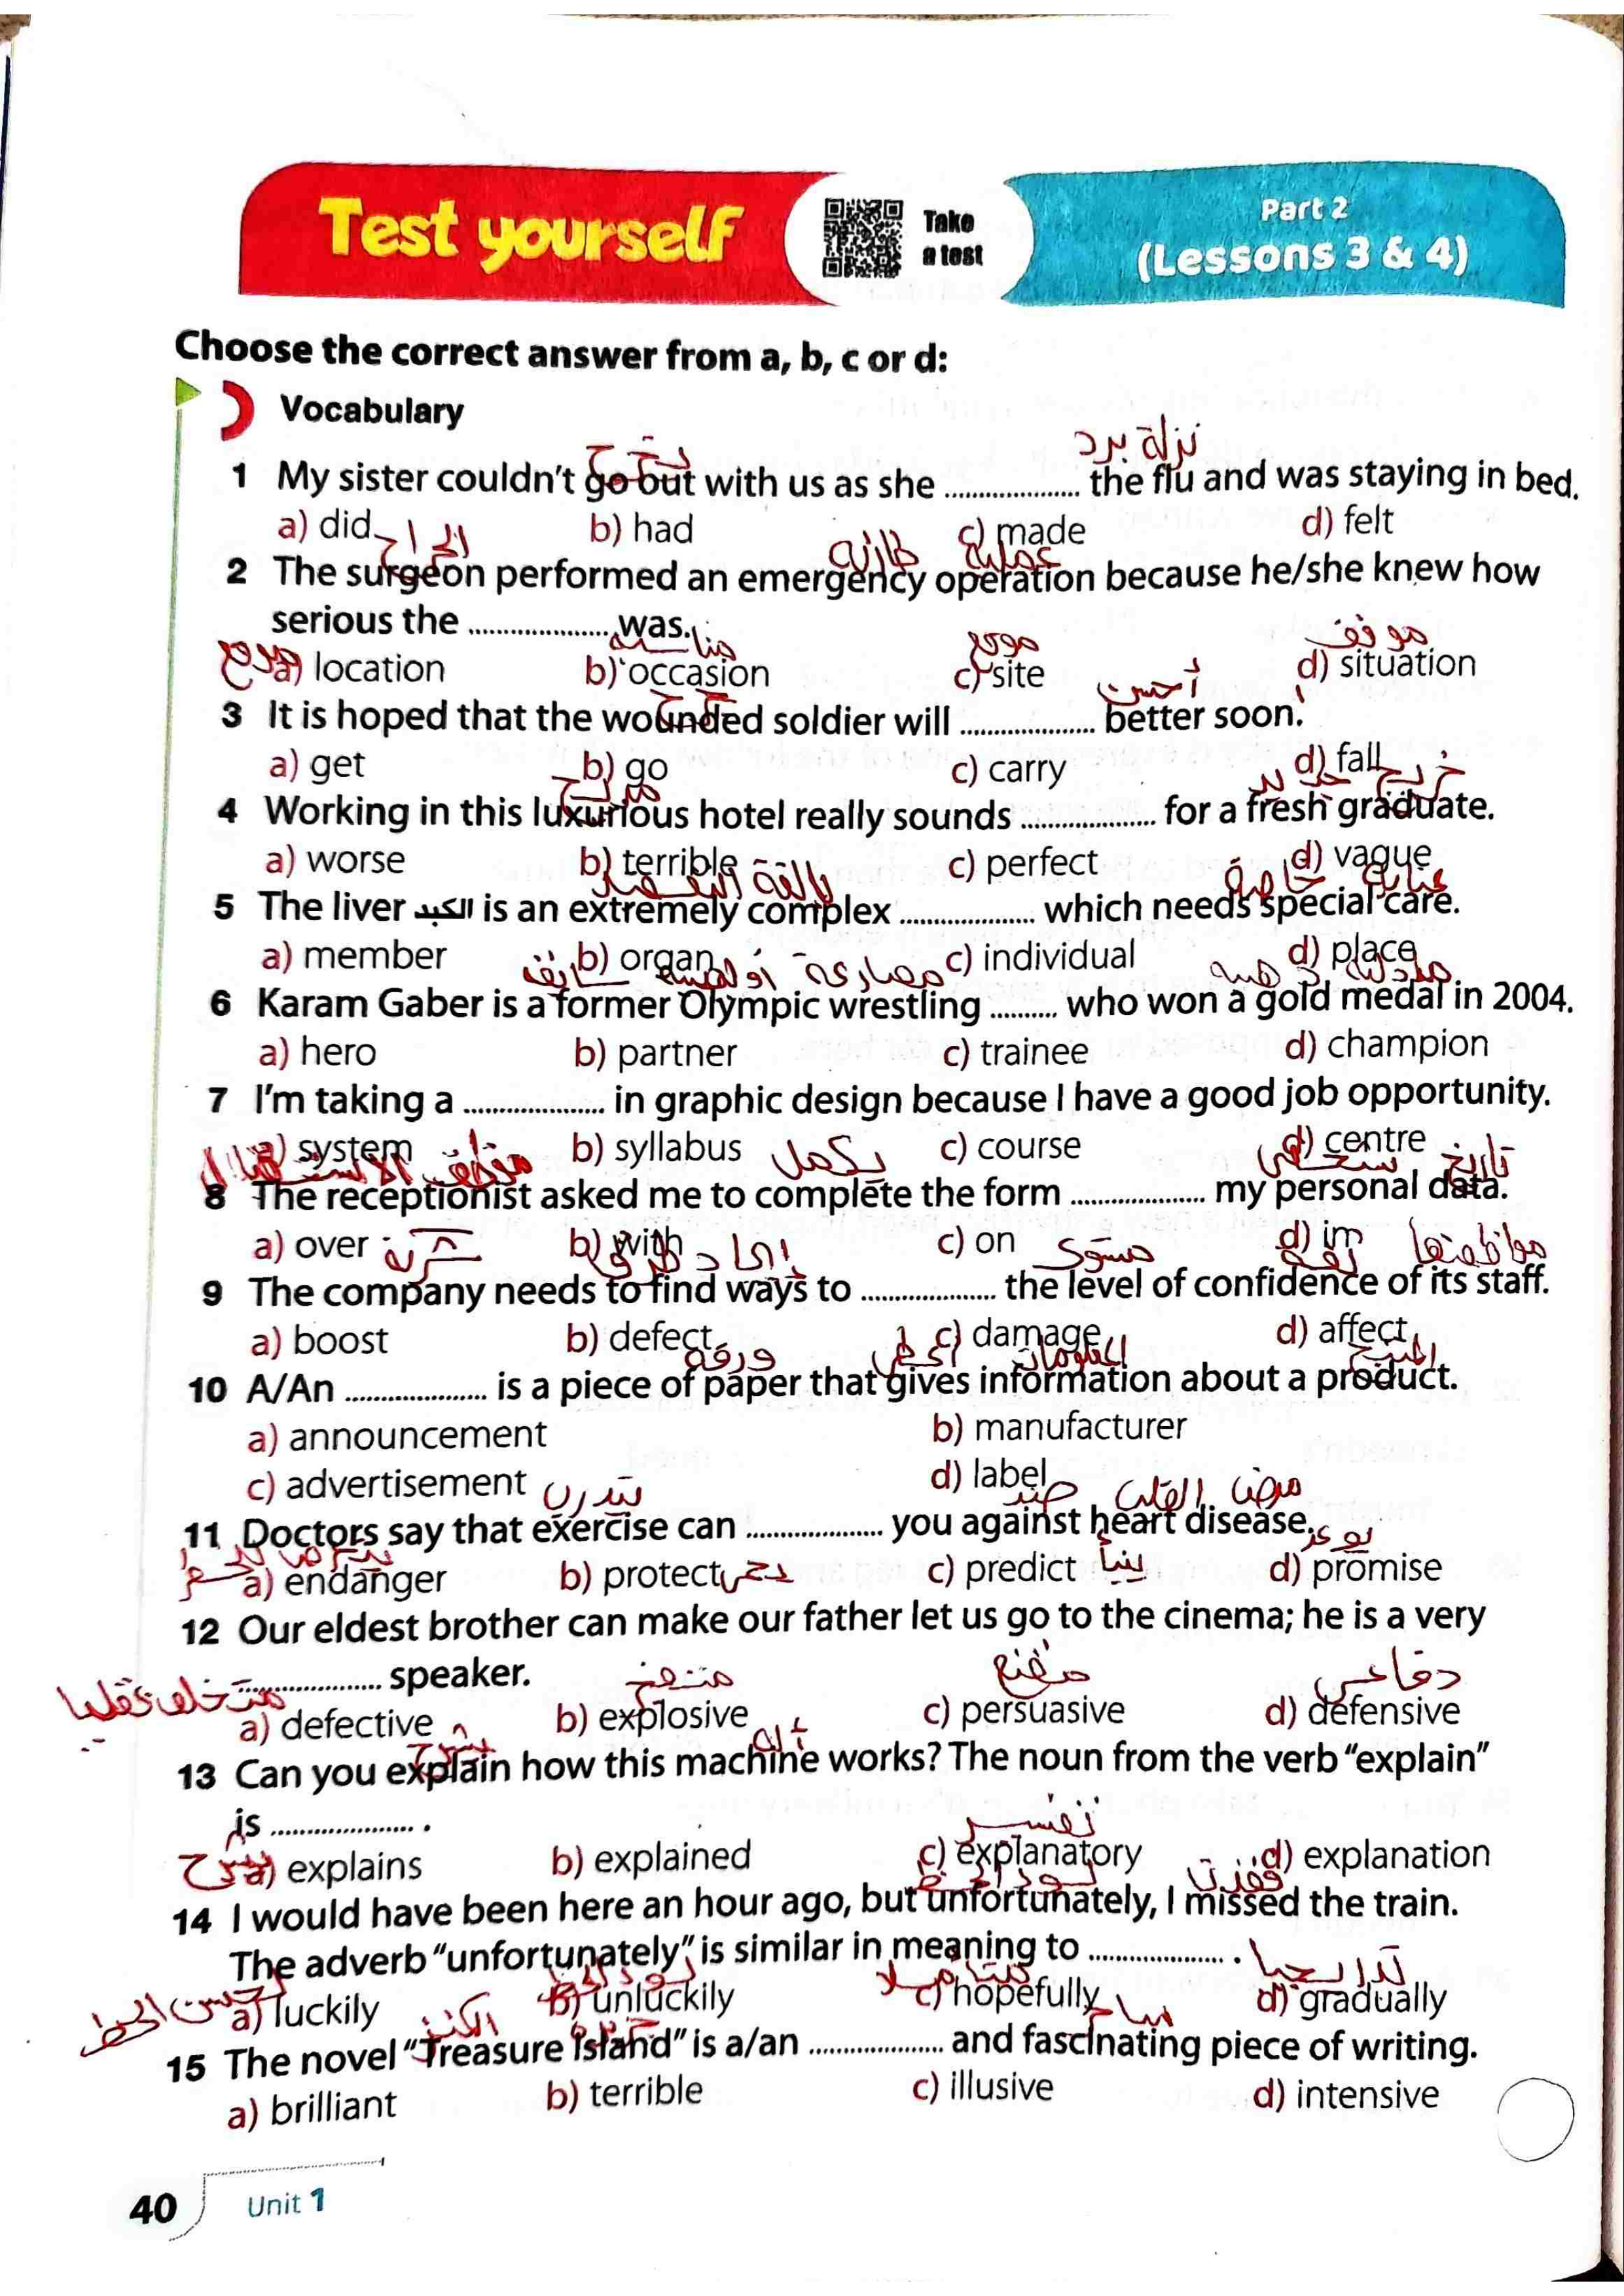 Test yourself
Take
a test
Part 2
(Lessons 3 & 4)
Choose the correct answer from a, b, c or d:
Vocabulary
نزلة برد
1 My sister couldn't go out with us as she .................. the flu and was staying in bed.
a) did b) had c) made d) felt
الجراح طارئة عملية
2 The surgeon performed an emergency operation because he/she knew how
serious the .................. was.
مناسبة موقع موقف
a) location b) occasion c) site d) situation
أحسن
3 It is hoped that the wounded soldier will .................. better soon.
a) get b) go c) carry d) fall
4 Working in this luxurious hotel really sounds .................. for a fresh graduate.
a) worse b) terrible c) perfect d) vague
بالغة التعقيد عناية خاصة
5 The liver الكبد is an extremely complex .................. which needs special care.
a) member b) organ c) individual d) place
سابق مصارعة
6 Karam Gaber is a former Olympic wrestling .......... who won a gold medal in 2004.
a) hero b) partner c) trainee d) champion
7 I'm taking a .................. in graphic design because I have a good job opportunity.
a) system b) syllabus c) course d) centre
يكمل
8 The receptionist asked me to complete the form .................. my personal data.
a) over b) with c) on d) im
مستوى ثقة
9 The company needs to find ways to .................. the level of confidence of its staff.
a) boost b) defect c) damage d) affect
ورقة المنتج
10 A/An .................. is a piece of paper that gives information about a product.
a) announcement b) manufacturer
c) advertisement d) label
ضد مرض القلب
11 Doctors say that exercise can .................. you against heart disease.
a) endanger b) protect c) predict d) promise
12 Our eldest brother can make our father let us go to the cinema; he is a very
.................. speaker.
مقنع دفاعي
a) defective b) explosive c) persuasive d) defensive
يشرح
13 Can you explain how this machine works? The noun from the verb "explain"
is .................. .
a) explains b) explained c) explanatory d) explanation
14 I would have been here an hour ago, but unfortunately, I missed the train.
The adverb "unfortunately" is similar in meaning to .................. .
تدريجيا
a) luckily b) unluckily c) hopefully d) gradually
الكنز جزيرة
15 The novel "Treasure Island" is a/an .................. and fascinating piece of writing.
a) brilliant b) terrible c) illusive d) intensive
40 Unit 1